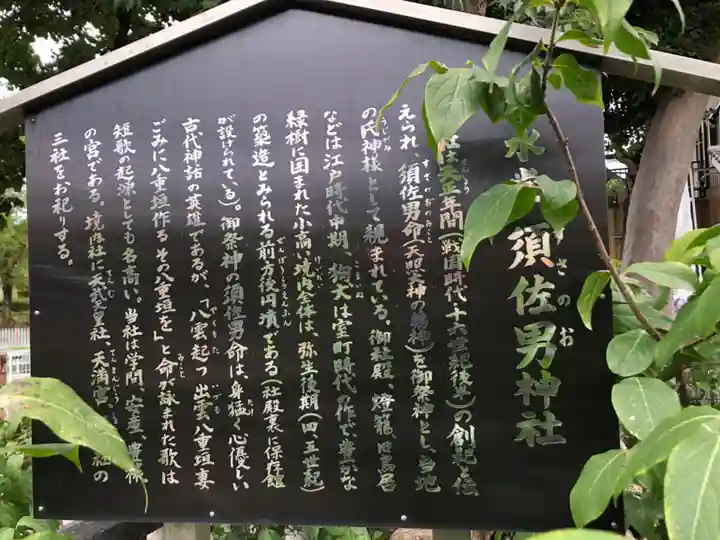 須佐男神社
すさのお
天正年間(戦国時代十六世紀後半)の創記と伝
えられ、須佐男命(天照大神の弟神)を御祭神とし、当地
すさのおのみこと
の氏神様として親まれている。御社殿、燈籠、旧鳥居
などは江戸時代中期、狛犬は室町時代の作で豊かな
緑樹に囲まれた小高い境内全体は、弥生後期(四、五世紀)
の築造とみられる前方後円墳である(社殿裏に保存館
ぜんぽうこうえんふん
が設けられている)。御祭神の須佐男命は、身猛く心優しい
古代神話の英雄であるが、「八雲起つ 出雲八重垣妻
ごみに八重垣作る その八重垣を」と命が詠まれた歌は
短歌の起源としても名高い。当社は学問、安産、
の宮である。境内社に天武天皇社、天満宮、
三社をお祀りする。